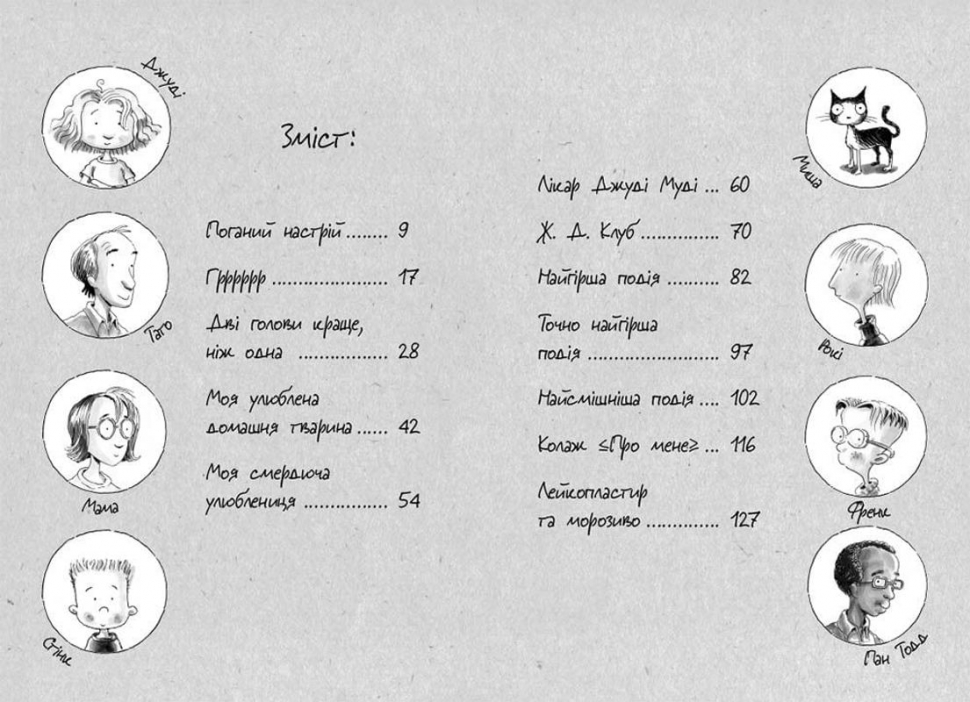 Джуді
Тато
Мама
Стінк
Зміст:
Поганий настрій ........ 9
Ґрррррр .................. 17
Дві голови краще,
ніж одна .................. 28
Моя улюблена
домашня тварина ...... 42
Моя смердюча
улюблениця ................ 54
Лікар Джуді Муді ... 60
Ж. Д. Клуб ............... 70
Найгірша подія .......... 82
Точно найгірша
подія ...................... 97
Найсмішніша подія .... 102
Колаж ≤Про мене≥ ... 116
Лейкопластир
та морозиво .............. 127
Миша
Рокі
Френк
Пан Тодд